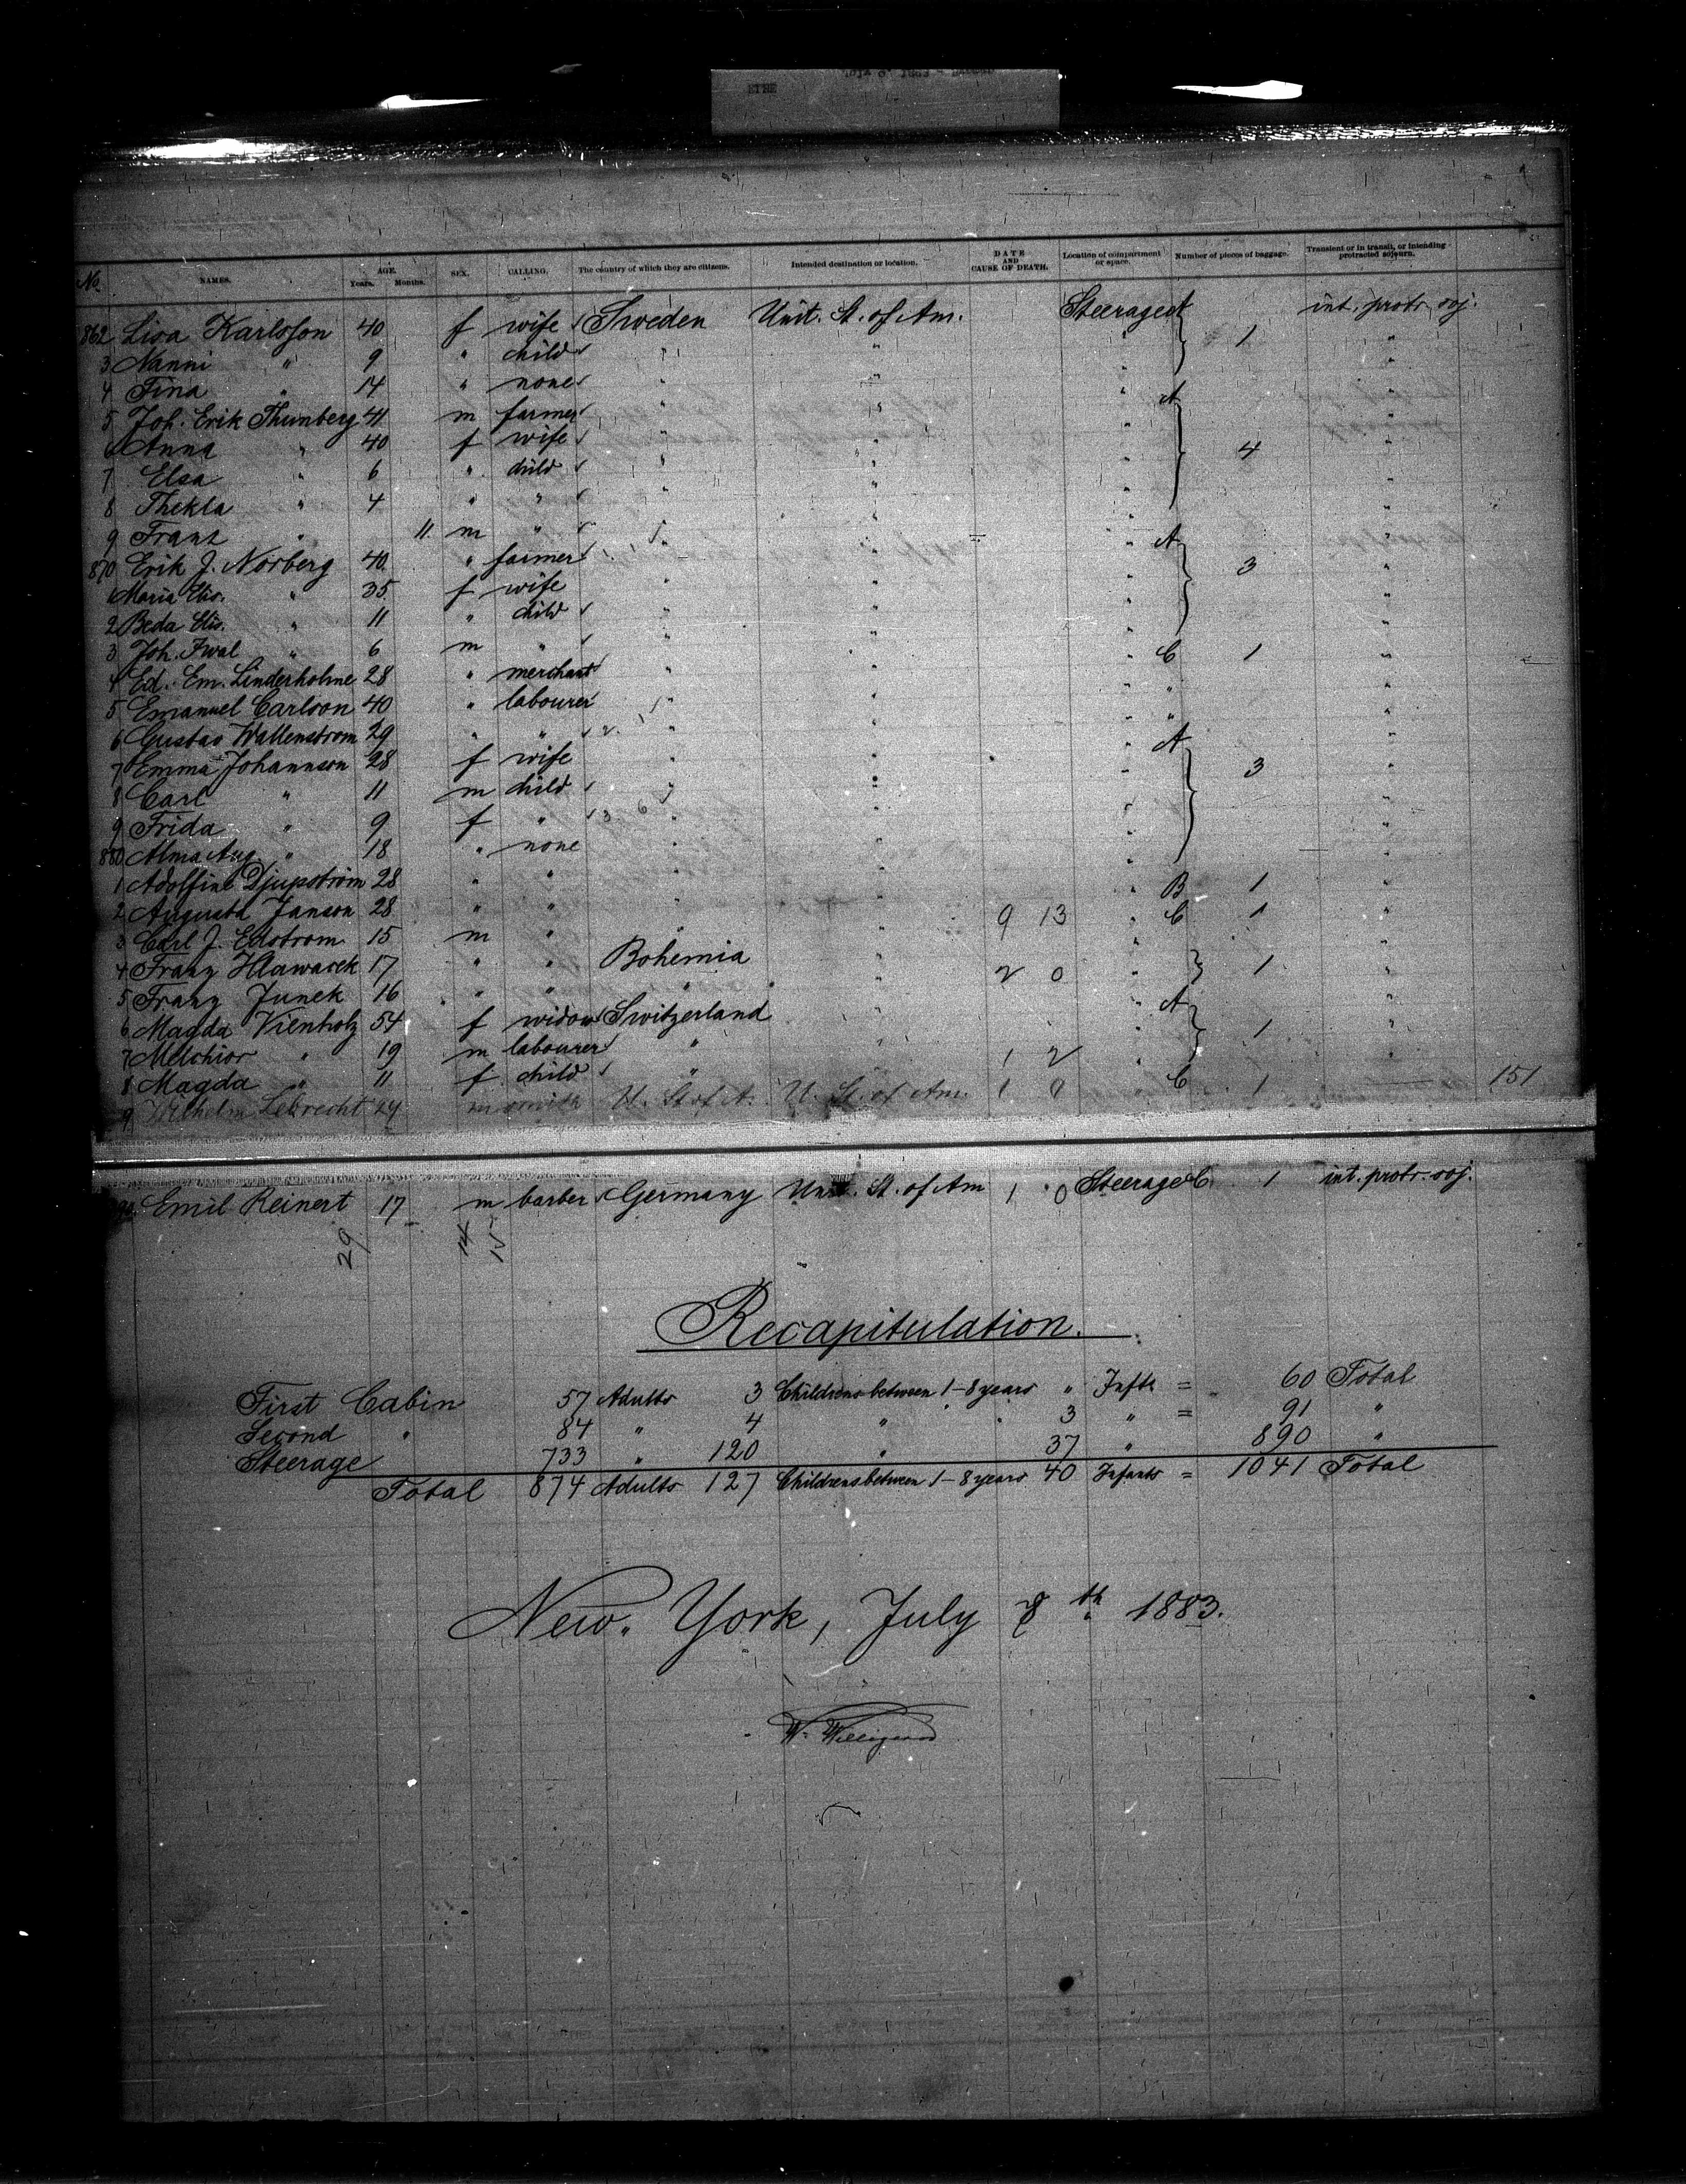 No. NAMES. AGE. Years. Months. SEX. CALLING. The country of which they are citizens. Intended destination or location. DATE AND CAUSE OF DEATH. Location of compartment or space. Number of pieces of baggage. Transient or in transit, or intending protracted sojourn.
862 Lisa Karlsson 40 f wife Sweden Unit. St. of Am. Steerage A 1 int. protr. soj.
3 Nanni " 9 " child " " " "
4 Fina " 14 " none " " " "
5 Joh. Erik Thunberg 41 m farmer " " " A 4 "
6 Anna " 40 f wife " " " "
7 Elsa " 6 " child " " " "
8 Thekla " 4 " " " " " "
9 Franz " 11 m " " " " "
870 Erik J. Norberg 40 " farmer " " " A 3 "
1 Maria Elis. " 35 f wife " " " "
2 Beda Elis. " 11 " child " " " "
3 Joh. Iwal " 6 m " " " " "
4 Ed. Em. Linderholme 28 " merchant " " " C 1 "
5 Emanuel Carlson 40 " labourer " " " " "
6 Gustav Wallenstrom 29 " " " " " " "
7 Emma Johannson 28 f wife " " " A 3 "
8 Carl " 11 m child " " " "
9 Frida " 9 f " " " " "
880 Alma Aug. " 18 " none " " " "
1 Adolfine Djupström 28 " " " " " B 1 "
2 Augusta Janson 28 " " " " 9 13 " C 1 "
3 Carl J. Edstrom 15 m " " " " "
4 Franz Hlawacek 17 " " Bohemia " 2 0 " 1 "
5 Franz Junek 16 " " " " " "
6 Magda Kienholz 54 f widow Switzerland " " A 1 "
7 Melchior " 19 m labourer " " 1 2 " "
8 Magda " 11 f child " " " "
9 Wilhelm Lebrecht 24 m U. St. of A. U. St. of Am. 1 " C 1 151
890 Emil Reinert 17 m barber Germany Unit. St. of Am 1 0 Steerage C. 1 int. protr. soj.
29 14 15
Recapitulation.
First Cabin 57 Adults 3 Childrens between 1-8 years " Infts = 60 Total
Second " 84 " 4 " 3 " = 91 "
Steerage 733 " 120 " 37 " 890 "
Total 874 Adults 127 Childrens between 1-8 years 40 Infants = 1041 Total
New York, July 8th 1883.
W. Willigerod